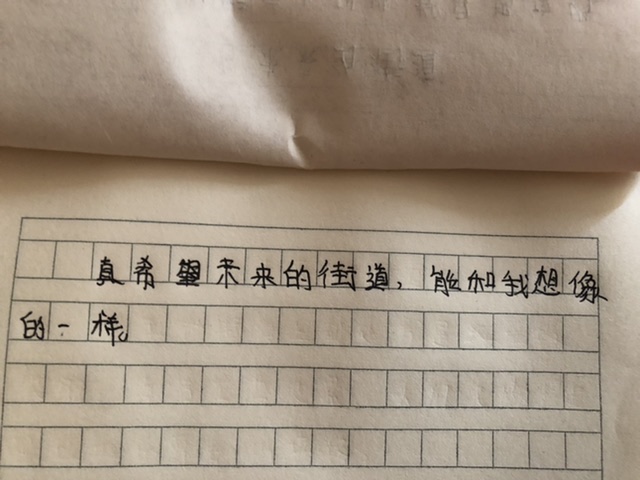 真希望未来的街道，能和我想像
的一样。